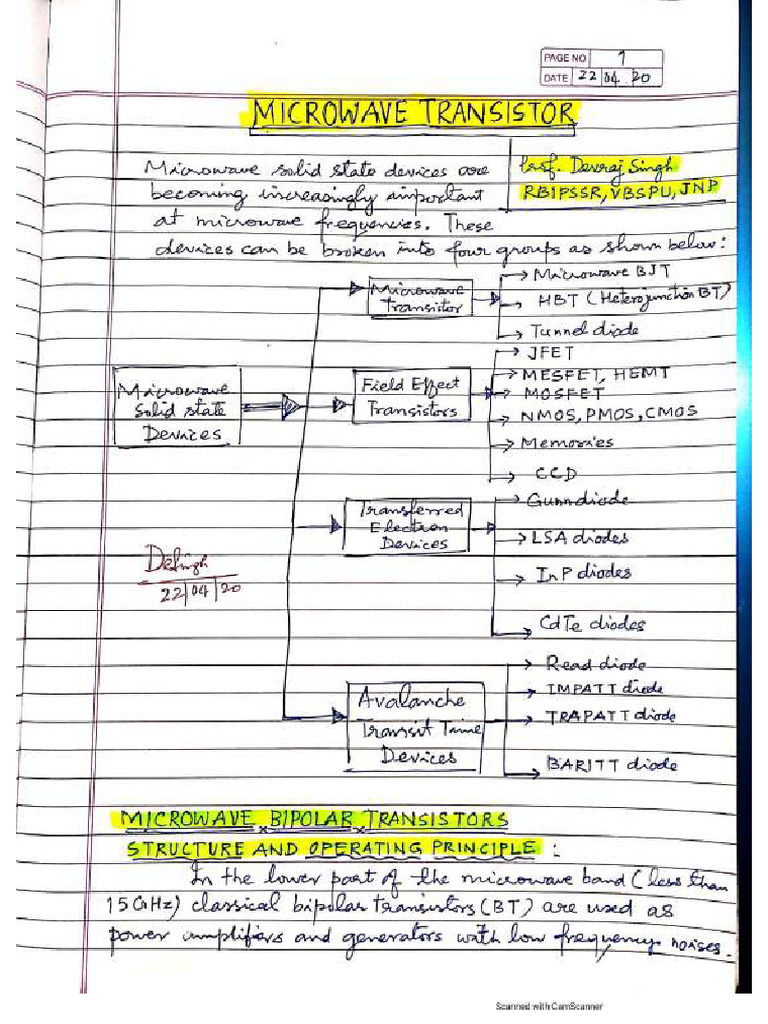 PAGE NO 1
DATE 22 04 20
MICROWAVE TRANSISTOR
Prof. Devraj Singh
RBIPSSR, VBSPU, JNP
Microwave solid state devices are
becoming increasingly important
at microwave frequencies. These
devices can be broken into four groups as shown below:
Microwave
Solid state
Devices
Microwave
Transistor
Microwave BJT
HBT (Heterojunction BT)
Tunnel diode
Field Effect
Transistors
JFET
MESFET, HEMT
MOSFET
NMOS, PMOS, CMOS
Memories
CCD
Transferred
Electron
Devices
Gunn diode
LSA diodes
InP diodes
CdTe diodes
22/04/20
Avalanche
Transit Time
Devices
Read diode
IMPATT diode
TRAPATT diode
BARITT diode
MICROWAVE BIPOLAR TRANSISTORS
STRUCTURE AND OPERATING PRINCIPLE :
In the lower part of the microwave band (less than
15 GHz) classical bipolar transistors (BT) are used as
power amplifiers and generators with low frequency noises.
Scanned with CamScanner